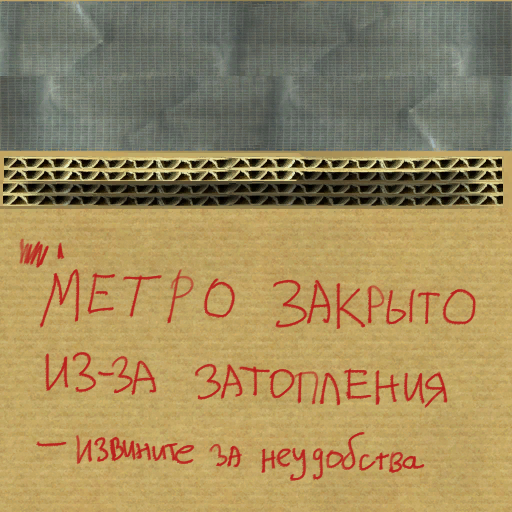 МЕТРО ЗАКРЫТО
ИЗ-ЗА ЗАТОПЛЕНИЯ
— извините за неудобства